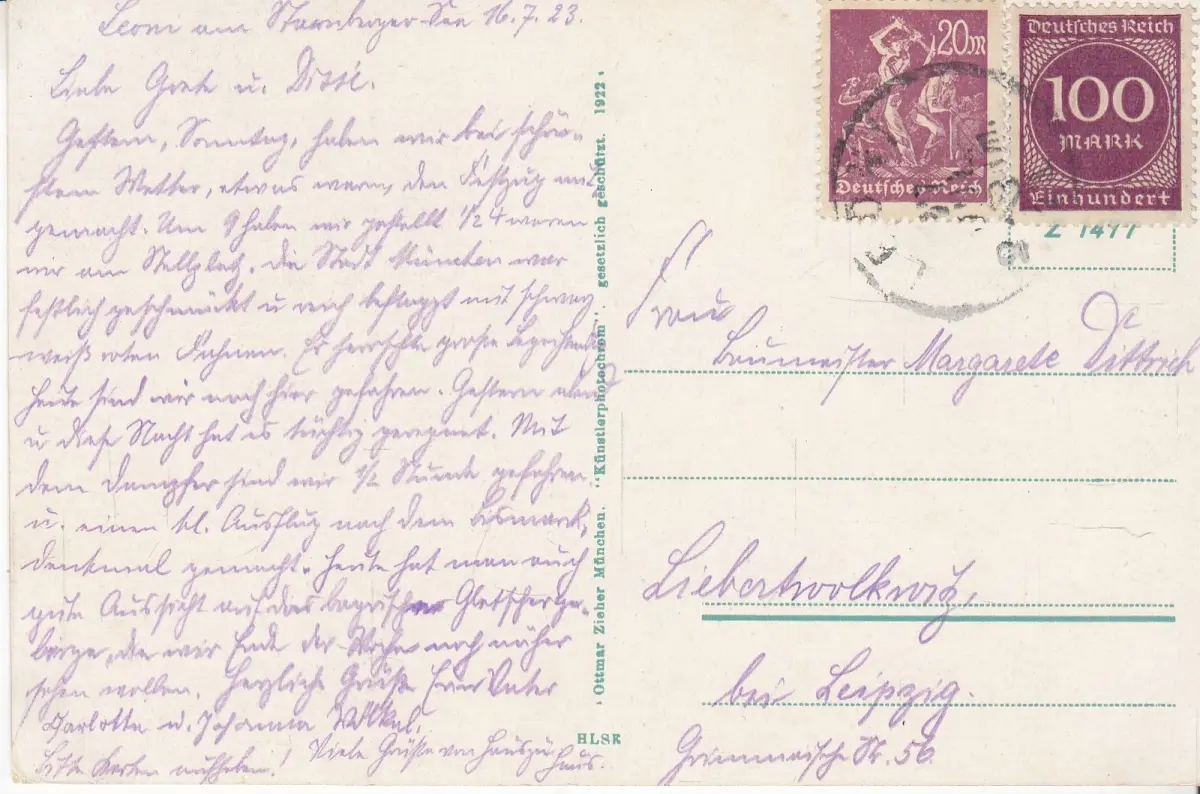 Leoni am Starnberger-See 16.7.23.
Liebe Grete u. Dissi.
Gestern, Sonntag, haben wir bei schön-
stem Wetter, etwas warm, den Festzug mit
gemacht. Um 9 haben wir gestellt ½ 4 waren
wir am Stellplatz. Die Stadt München war
festlich geschmückt u reich beflaggt mit schwarz
weiß roten Fahnen. Es herrschte große Begeisterung
Heute sind wir nach hier gefahren. Gestern abend
u diese Nacht hat es tüchtig geregnet. Mit
dem Dampfer sind wir ½ Stunde gefahren
u. einen kl. Ausflug nach dem Bismarck,
denkmal gemacht. Heute hat man auch
gute Aussicht auf das bayrische Gletscherge-
birge, den wir Ende der Woche noch näher
sehen wollen. Herzliche Grüße Euer Vater
Charlotte u. Johanna
Bitte Karten aufheben! Viele Grüße von Haus zu
Haus.
Ottmar Zieher München. "Künstlerphotochrom". gesetzlich geschützt. 1922.
HLSK
20m
Deutsches Reich
Deutsches Reich
100
MARK
Einhundert
Z 1477
Frau
Baumeister Margarete Dittrich
Liebertwolkwitz,
bei Leipzig.
Grimmaische Str. 56.